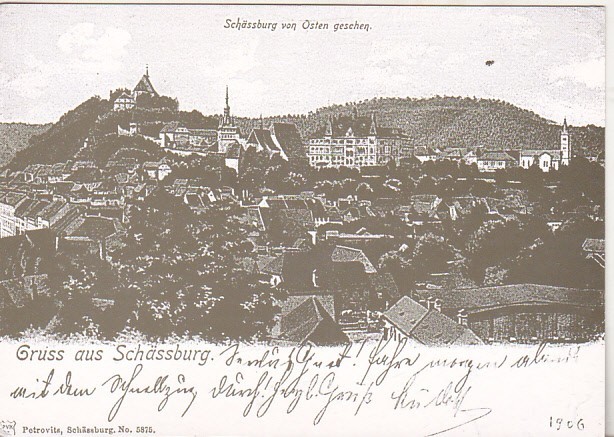 Schässburg von Osten gesehen.
Gruss aus Schässburg. Servus Gust! Fahre morgen abend
mit dem Schnellzug durch! Herzl. Gruß Rudolf
1906
Petrovits, Schässburg. No. 5875.